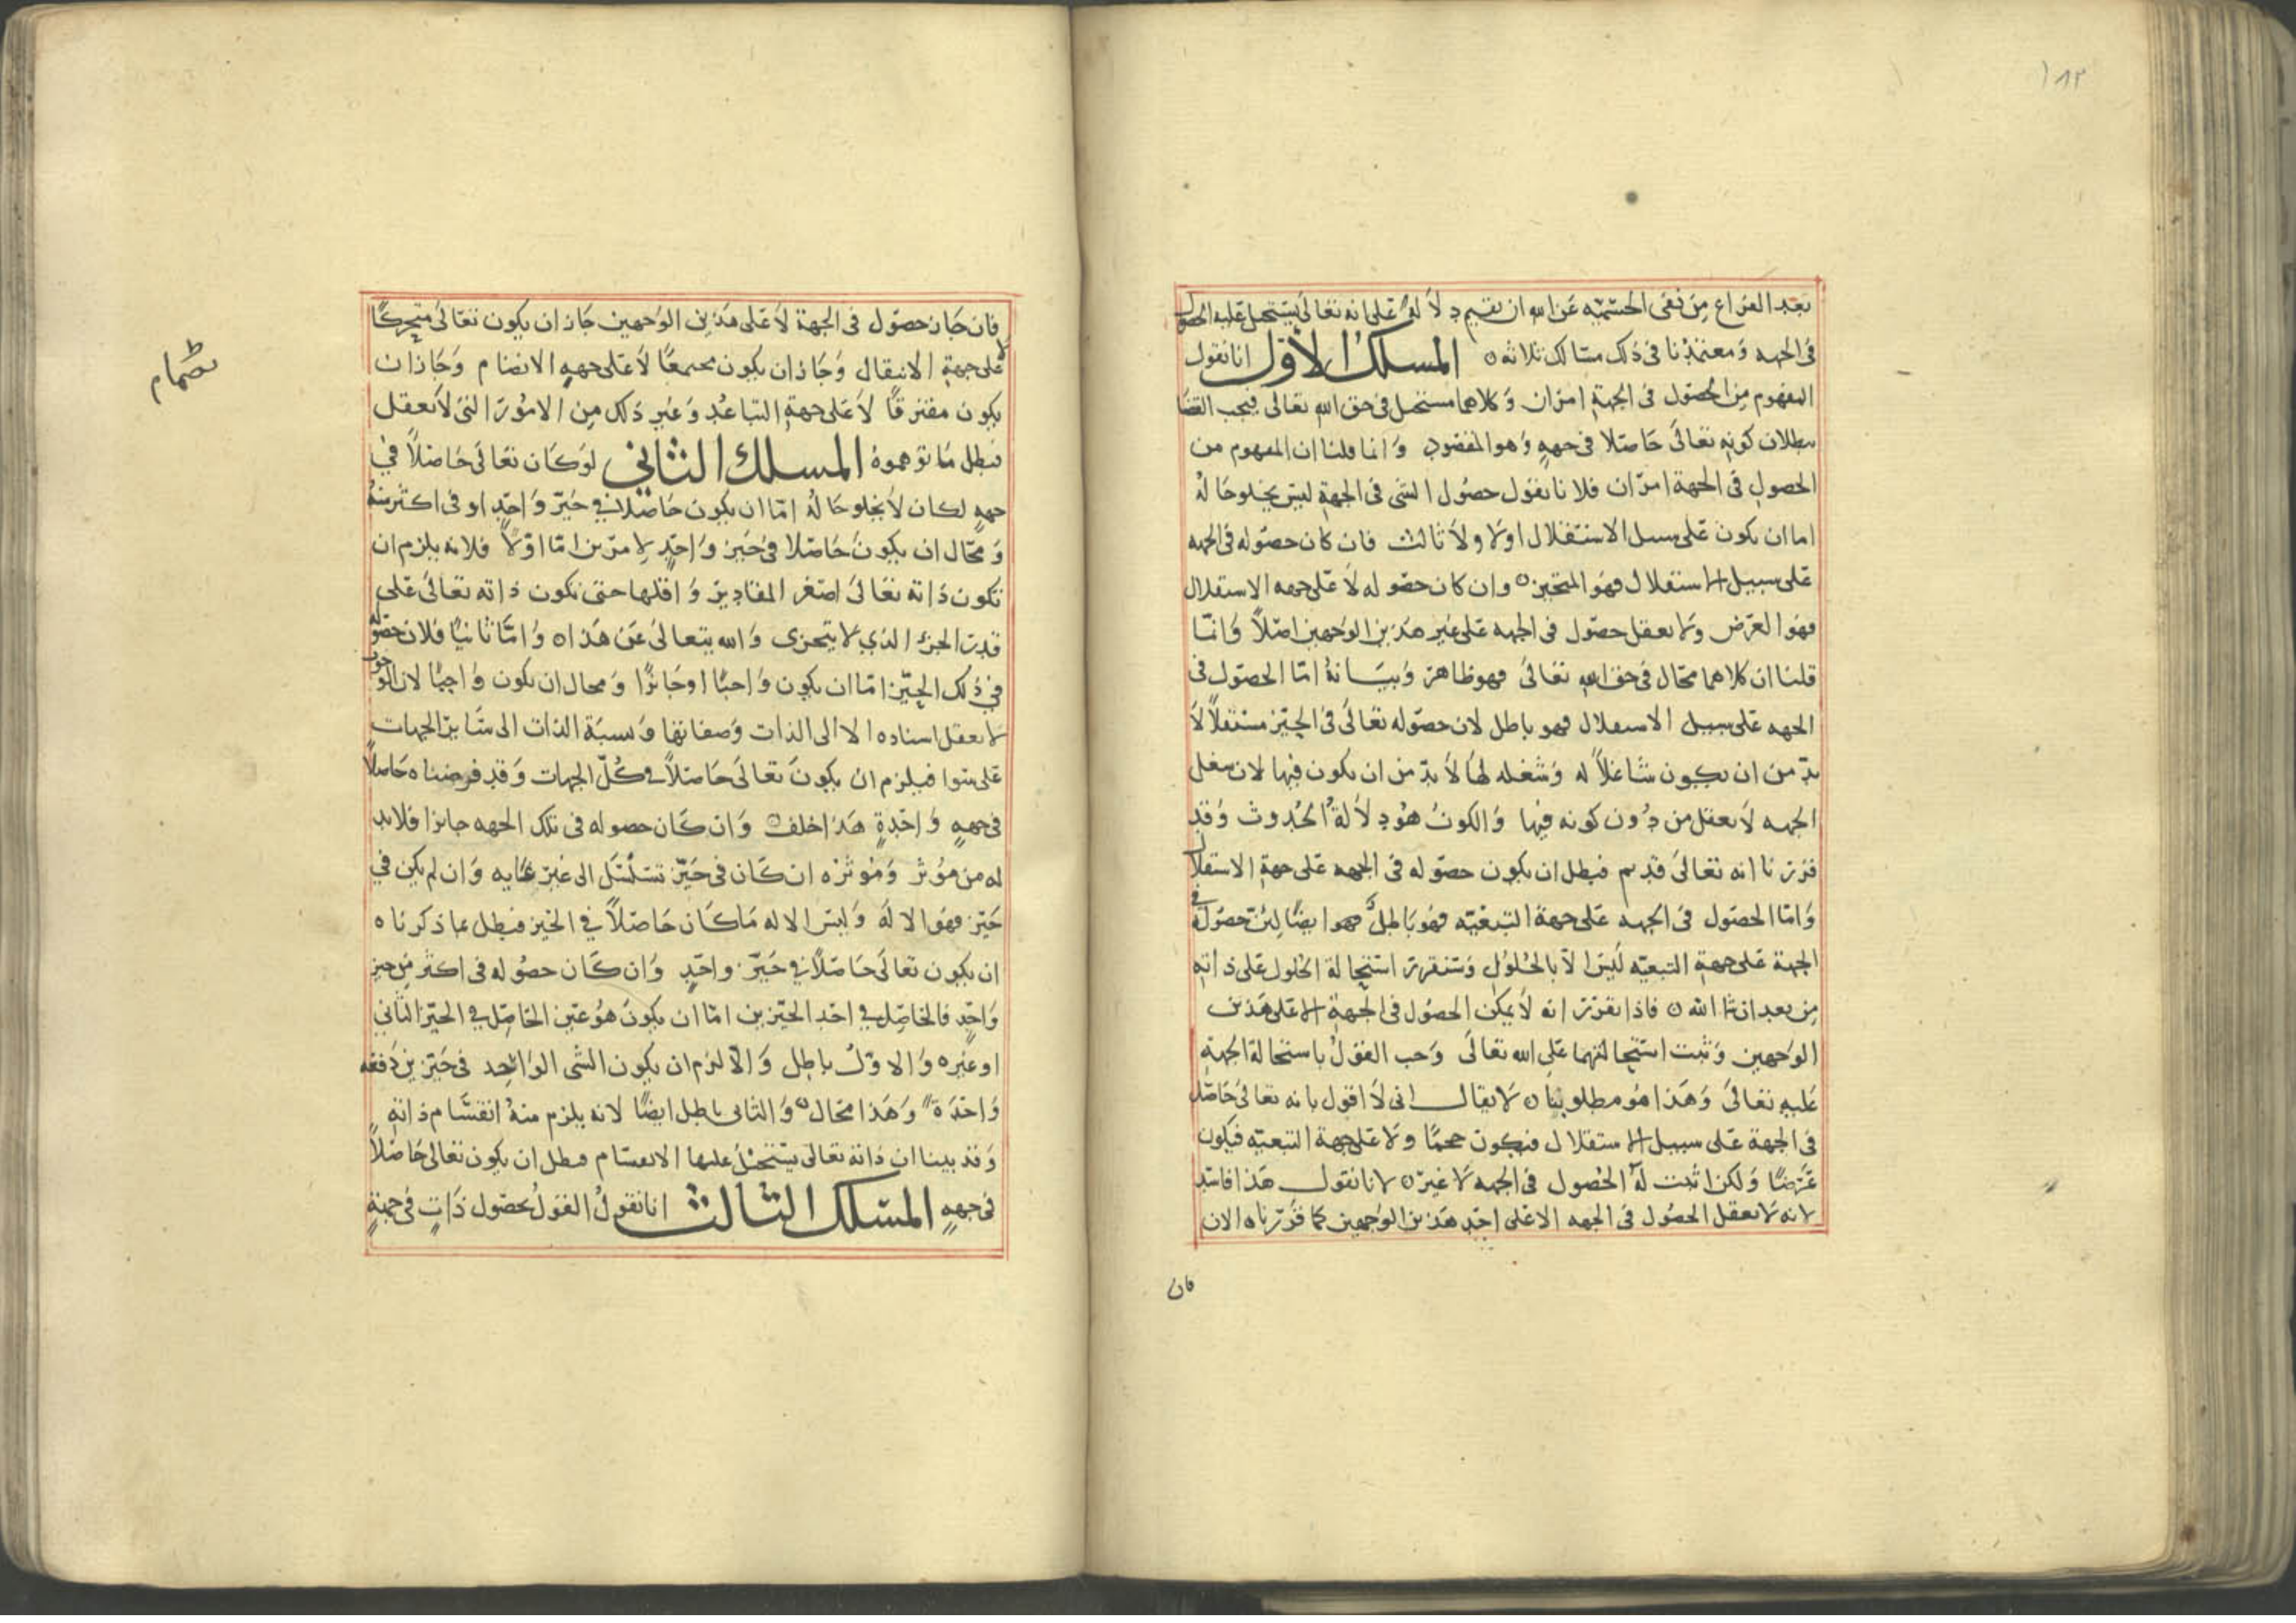 ١٨٣
بعد الفراغ من نفى الجسميه عن الله ان نقيم دلاله على انه تعالى يستحيل عليه الحصول
فى الجهه ومعتمدنا فى ذلك مسالك ثلاثه ه المسلك الاول انا نقول
المفهوم من الحصول فى الجهة امران وكلاهما مستحيل فى حق الله تعالى فيجب القضا
ببطلان كونه تعالى حاصلا فى جهه وهو المقصود وانما قلنا ان المفهوم من
الحصول فى الجهة امران فلانا نقول حصول الشى فى الجهة ليس يخلو حاله
اما ان يكون على سبيل الاستقلال اولا ولا ثالث فان كان حصوله فى الجهه
على سبيل الاستقلال فهو المتحيز ه وان كان حصوله لا على جهه الاستقلال
فهو العرض ولا يعقل حصول فى الجهه على غير هذين الوجهين اصلاً وانما
قلنا ان كلاهما محال فى حق الله تعالى فهو ظاهر وبيانه اما الحصول فى
الجهه على سبيل الاستقلال فهو باطل لان حصوله تعالى فى الحيز مستقلاً لا
بد من ان يكون شاغلاً له وشغله لها لا بد من ان يكون فيها لان شغل
الجهه لا يعقل من دون كونه فيها والكون هو دلالة الحدوث وقد
قررنا انه تعالى قديم فبطل ان يكون حصوله فى الجهه على جهة الاستقلال
واما الحصول فى الجهه على جهة التبعيه فهو باطل فهو ايضًا لئن حصوله فى
الجهة على جهة التبعيه ليس الا بالحلول وسنقرر استحالة الحلول على ذاته
من بعد ان شا الله ه فاذا تقرر انه لا يمكن الحصول فى الجهة الا على هذين
الوجهين وثبت استحالتهما على الله تعالى وجب القول باستحالة الجهة
عليه تعالى وهذا هو مطلوبنا ه لا يقال انى لا اقول بانه تعالى حاصل
فى الجهة على سبيل الاستقلال فيكون جسمًا ولا على جهة التبعيه فيكون
عرضًا ولكن اثبت له الحصول فى الجهه لا غير ه لانا نقول هذا فاسد
لانه لا يعقل الحصول فى الجهه الا على احد هذين الوجهين كما قررناه الان
فان
فان جاز حصول فى الجهة لا على هذين الوجهين جاز ان يكون تعالى متحركًا
لا على جهة الانتقال وجاز ان يكون مجتمعًا لا على جهه الانضمام وجاز ان
يكون مفترقًا لا على جهة التباعد وغير ذلك من الامور التى لا تعقل
فبطل ما توهموه المسلك الثانى لو كان تعالى حاصلاً في
جهه لكان لا يخلو حاله اما ان يكون حاصلا في حيز واحد او فى اكثر منه
ومحال ان يكون حاصلا فى حيز واحد لامرين اما اولا فلانه يلزم ان
تكون ذاته تعالى اصغر المقادير واقلها حتى تكون ذاته تعالى على
قدر الجزء الذي لا يتجزى والله يتعالى عن هذا ه واما ثانيًا فلان حصوله
في ذلك الحيز اما ان يكون واجبًا او جائزًا ومحال ان يكون واجبًا لان الوجوب
لا يعقل اسناده الا الى الذات وصفاتها ونسبة الذات الى سائر الجهات
على سوا فيلزم ان يكون تعالى حاصلاً في كلّ الجهات وقد فرضناه حاصلاً
فى جهه واحدة هذا خلف ه وان كان حصوله فى تلك الجهه جائزا فلا بد
له من مؤثر ومؤثره ان كان فى حيز تسلسل الى غير غايه وان لم يكن في
حيز فهو الاله وليس الاله ماكان حاصلاً في الحيز فبطل بما ذكرناه
ان يكون تعالى حاصلاً في حيز واحد وان كان حصوله فى اكثر من حيز
واحد فالحاصل في احد الحيزين اما ان يكون هو عين الحاصل في الحيز الثاني
او غيره والاول باطل والا لزم ان يكون الشى الواحد فى حيزين دفعه
واحدة وهذا محال ه والثانى باطل ايضًا لانه يلزم منه انقسام ذاته
وقد بينا ان ذاته تعالى يستحيل عليها الانقسام فبطل ان يكون تعالى حاصلاً
فى جهه المسلك الثالث انا نقول القول بحصول ذات فى جهة